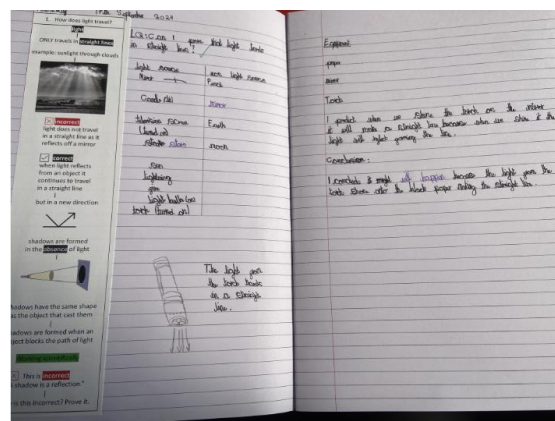 September 2024
1. How does light travel?
light
ONLY travels in straight lines
example: sunlight through clouds
incorrect
light does not travel
in a straight line as it
reflects off a mirror
correct
when light reflects
from an object it
continues to travel
in a straight line
but in a new direction
shadows are formed
in the absence of light
shadows have the same shape
as the object that cast them
shadows are formed when an
object blocks the path of light
This is incorrect
shadow is a reflection"
is this incorrect? Prove it.
I prove that light travels
in straight lines?
light source
not light source
Mirror
Torch
Candle
mirror
Earth
(turned on)
moon
sun
lightning
light bulb (on)
torch (turned on)
The light from
the torch travels
in a straight
line.
Equipment
paper
mirror
Torch
I predict when we shine the torch on the mirror
it will make a straight line because when we shine it the
light will
Conclusion:
I conclude it might will happen because the light from the
torch shone onto the black paper making the straight line.